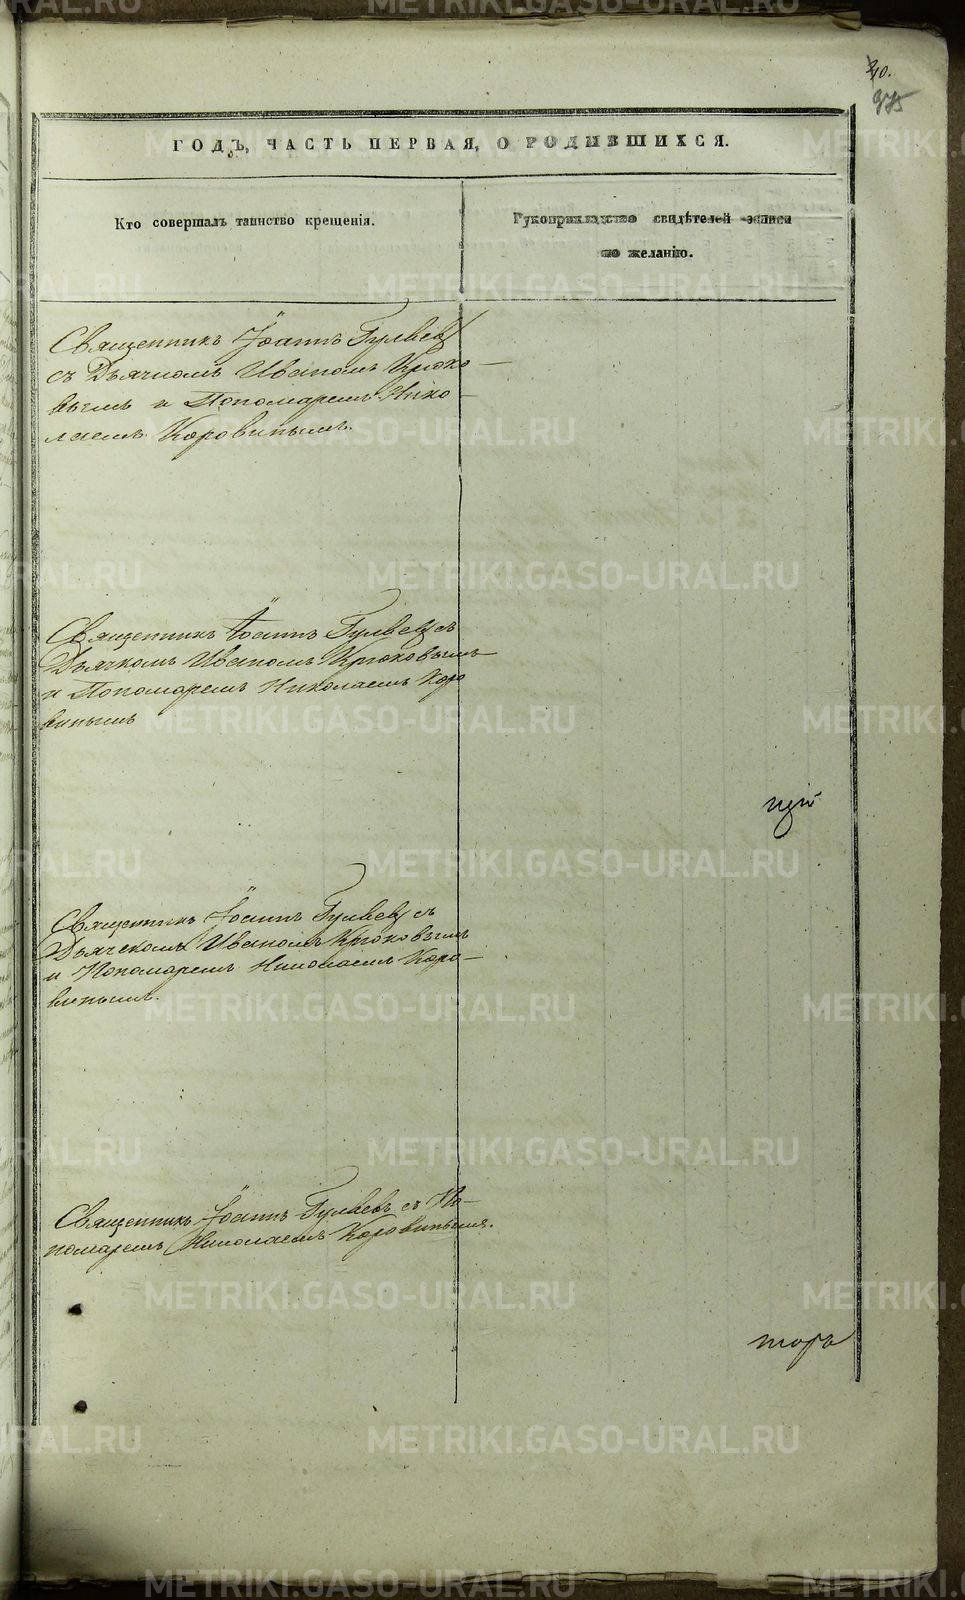 40.
975
ГОДЪ, ЧАСТЬ ПЕРВАЯ, О РОДИВШИХСЯ.
Кто совершалъ таинство крещенія.
Рукоприкладство свидѣтелей записи
по желанію.
Священникъ Іоаннъ Гуляевъ
съ Дьячкомъ Иваномъ Крюко-
вымъ и Пономаремъ Нико-
лаемъ Коровинымъ.
Священникъ Іоаннъ Гуляевъ съ
Дьячкомъ Иваномъ Крюковымъ
и Пономаремъ Николаемъ Коро
винымъ
Священникъ Іоаннъ Гуляевъ съ
Дьячекомъ Иваномъ Крюковымъ
и Пономаремъ Николаемъ Коро-
винымъ.
Священникъ Іоаннъ Гуляевъ съ По-
номаремъ Николаемъ Коровинымъ.
METRIKI.GASO-URAL.RU